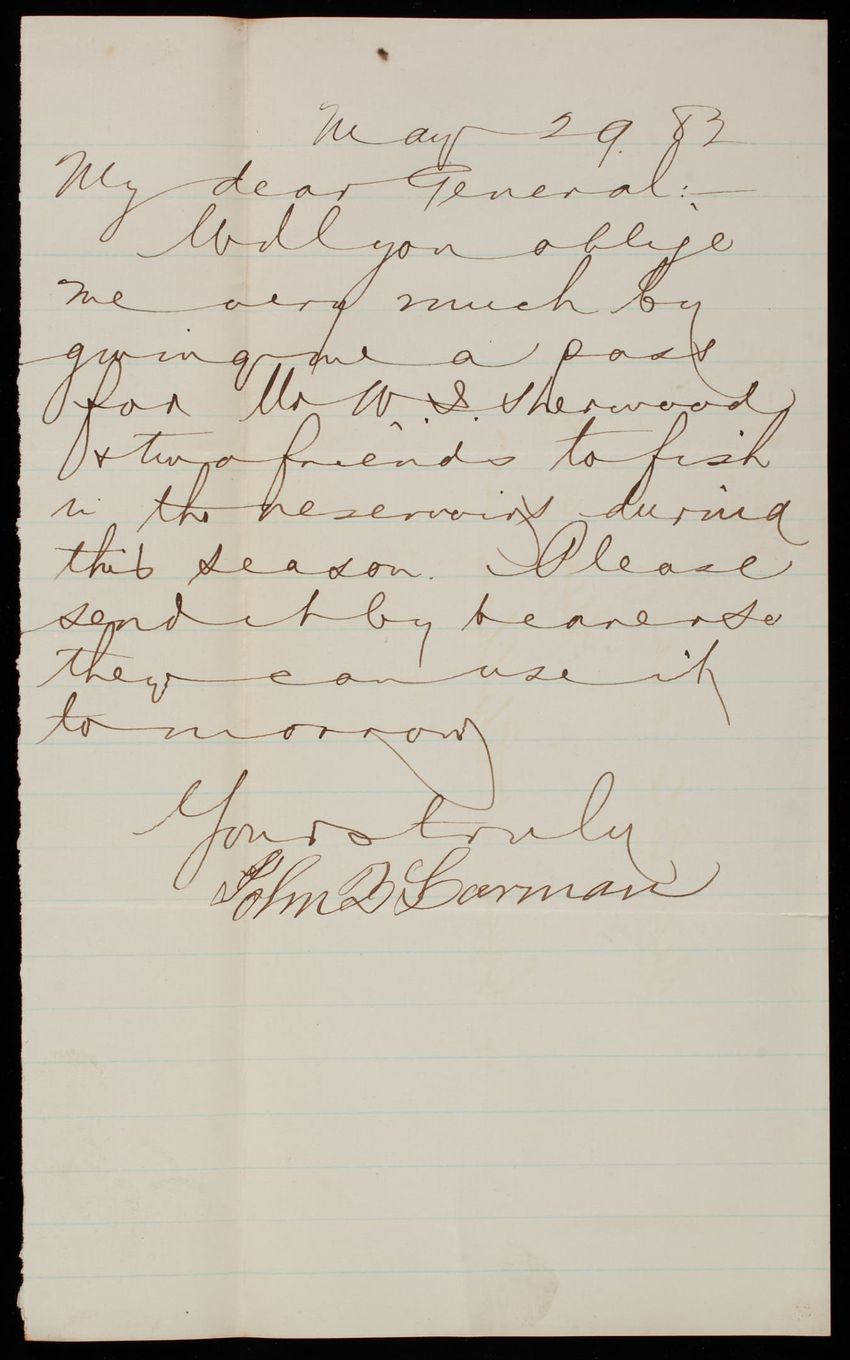 May 29. 82
My dear General:—
Will you oblige
me very much by
giving me a pass
for Mr W. S. Sherwood
& two friends to fish
in the reservoirs during
this season. Please
send it by bearer so
they can use it
tomorrow
Yours truly
John B Larman